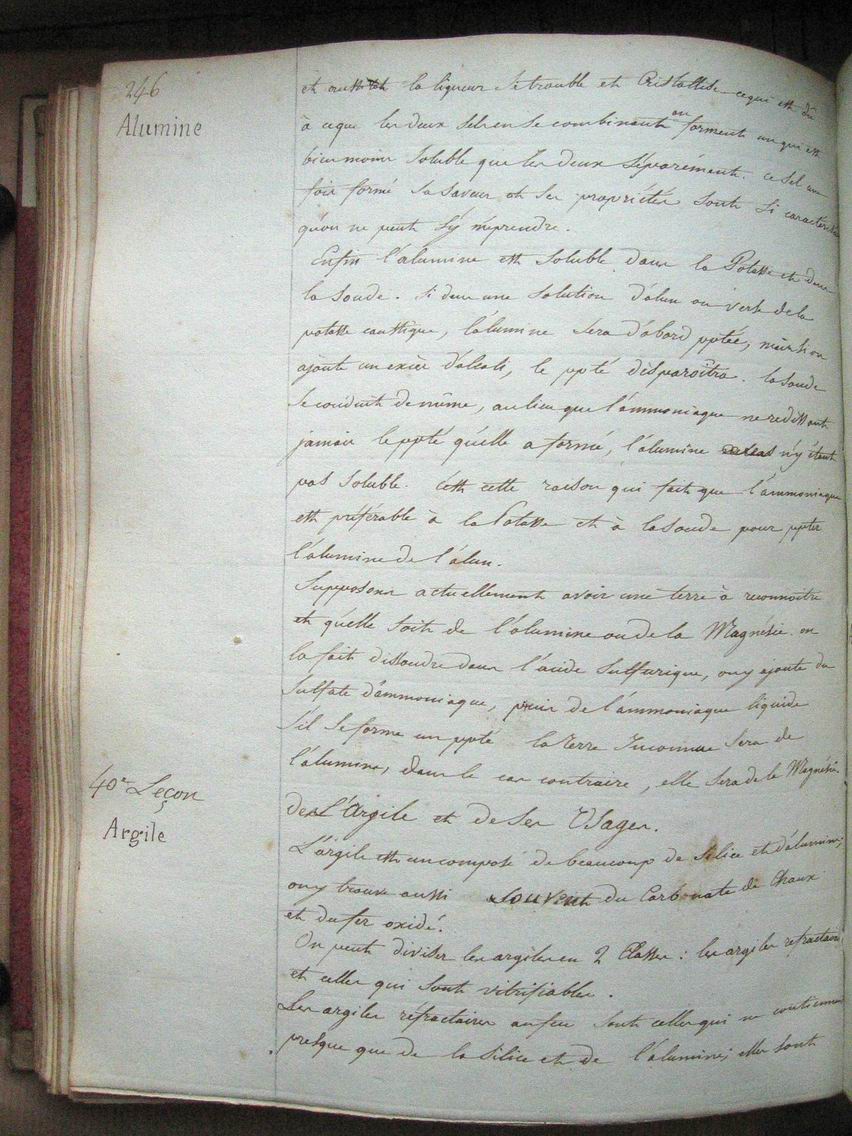 246
Alumine
et aussitôt la liqueur se trouble et Cristallise ce qui est dû
à ce que les deux sels en se combinant en forment un qui est
bien moins soluble que les deux séparément. ce sel une
fois formé sa saveur et ses propriétés sont si caractéris
qu'on ne peut s'y m'éprendre.
Enfin l'alumine est soluble dans la Potasse et dans
la soude. si dans une solution d'alun on verse de la
potasse caustique, l'alumine sera d'abord pptée, mais si on
ajoute un excès d'alcali, le ppté disparoîtra. la soude
se conduit de même, au lieu que l'ammoniaque ne redissout
jamais le ppté qu'elle a formé, l'alumine n'y étant
pas soluble. C'est cette raison qui fait que l'ammoniaque
est préférable à la Potasse et à la soude pour ppter
l'alumine de l'alun.
Supposons actuellement avoir une terre à reconnoître
et qu'elle soit de l'alumine ou de la Magnésie. on
la fait dissoudre dans l'acide sulfurique, on y ajoute du
sulfate d'ammoniaque, puis de l'ammoniaque liquide
s'il se forme un ppté la terre Inconnue sera de
l'alumine, dans le cas contraire, elle sera de la Magnésie
40e Leçon
Argile
de L'Argile et de Ses Usages.
L'argile est un composé de beaucoup de silice et d'alumine;
on y trouve aussi souvent du Carbonate de Chaux
et du fer oxidé.
On peut diviser les argiles en 2 Classes: les argiles refractaires
et celles qui sont vitrifiables.
Les argiles réfractaires au feu sont celles qui ne contiennent
presque que de la silice et de l'alumine; elles sont